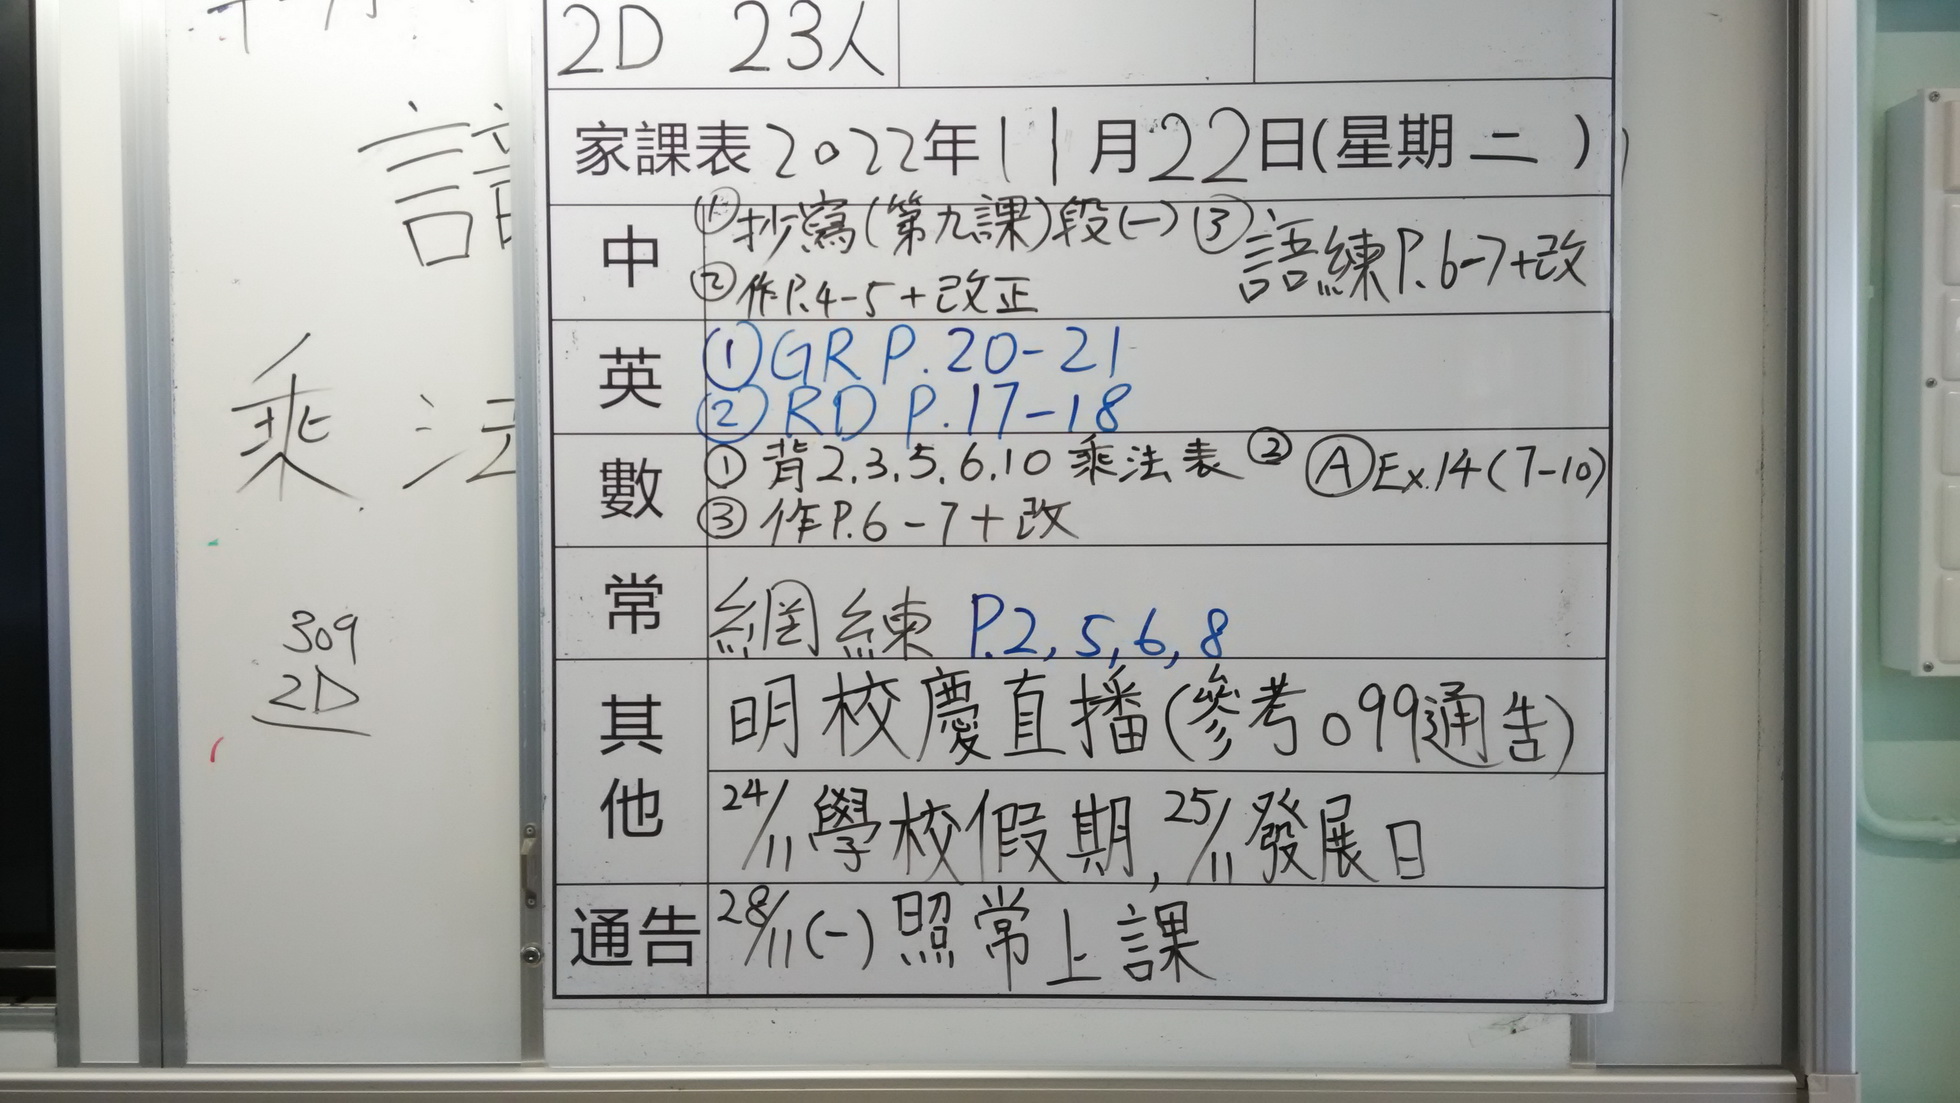 2D 23人
家課表2022年11月22日(星期二)
中
①抄寫(第九課)段(一) ③語練P.6-7+改
②作P.4-5+改正
英
①GR P.20-21
②RD P.17-18
數
①背2.3.5.6.10乘法表 ② Ⓐ Ex.14(7-10)
③作P.6-7+改
常
網練 P.2,5,6,8
其他
明校慶直播(參考099通告)
24/11學校假期,25/11發展日
通告
28/11(一)照常上課
乘法
309
2D